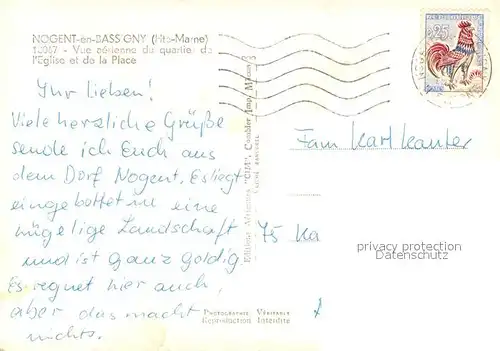 NOGENT-en-BASSIGNY (Hte-Marne)
10067 - Vue aérienne du quartier de
l'Eglise et de la Place
Ihr lieben!
Viele herzliche Grüße
sende ich Euch aus
dem Dorf Nogent. Es liegt
eingebettet in eine
hügelige Landschaft
und ist ganz goldig
Es regnet hier auch,
aber das macht
nichts.
"CIM", Combier Imp. Macon
Fam Karl Kanter
75 Ka
privacy protection
Datenschutz
Reproduction Interdite
0,25